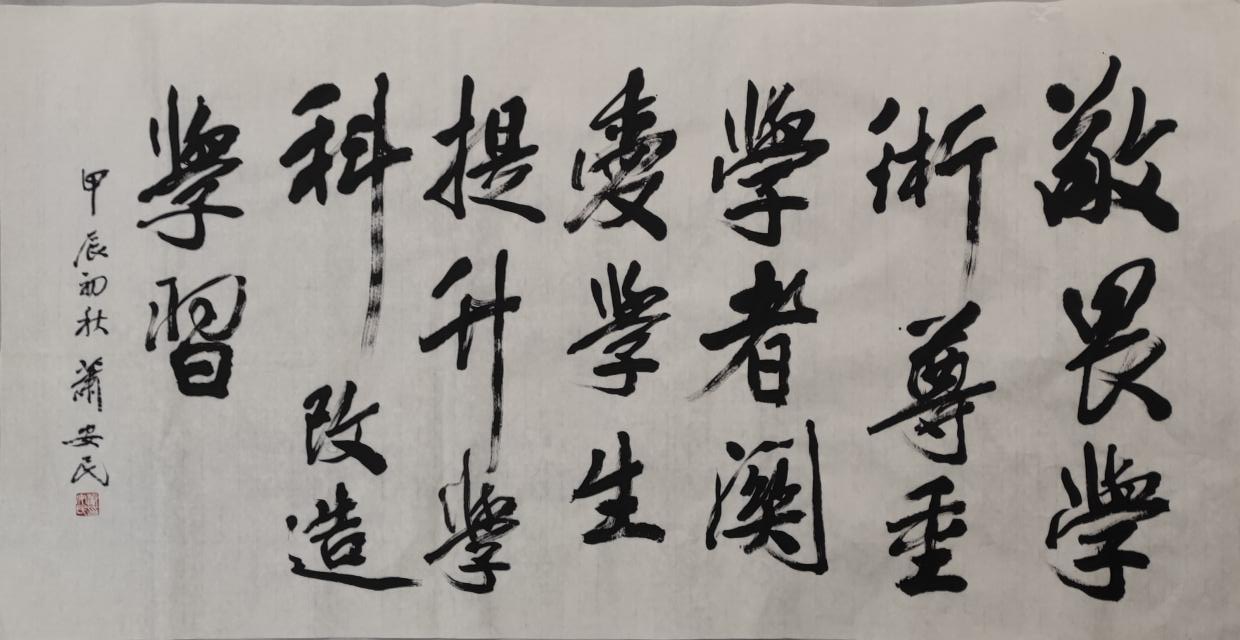 敬畏學
術尊重
學者関
愛學生
提升學
科改造
學習
甲辰初秋蕭安民